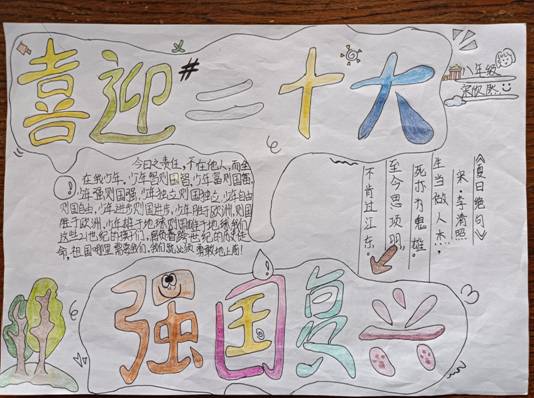 喜迎二十大
八年级
今日之责任，不在他人，而全
在我少年，少年智则国智，少年富则国富，
少年强则国强，少年独立则国独立，少年自由
则国自由，少年进步则国进步，少年胜于欧洲，则国
胜于欧洲，少年雄于地球则国雄于地球我们
这些21世纪的孩们，肩负着跨世纪的
命，祖国哪里需要我们，我们就必须勇敢地上前！
《夏日绝句》
宋·李清照
生当做人杰，
死亦为鬼雄。
至今思项羽
不肯过江东。
强国复兴